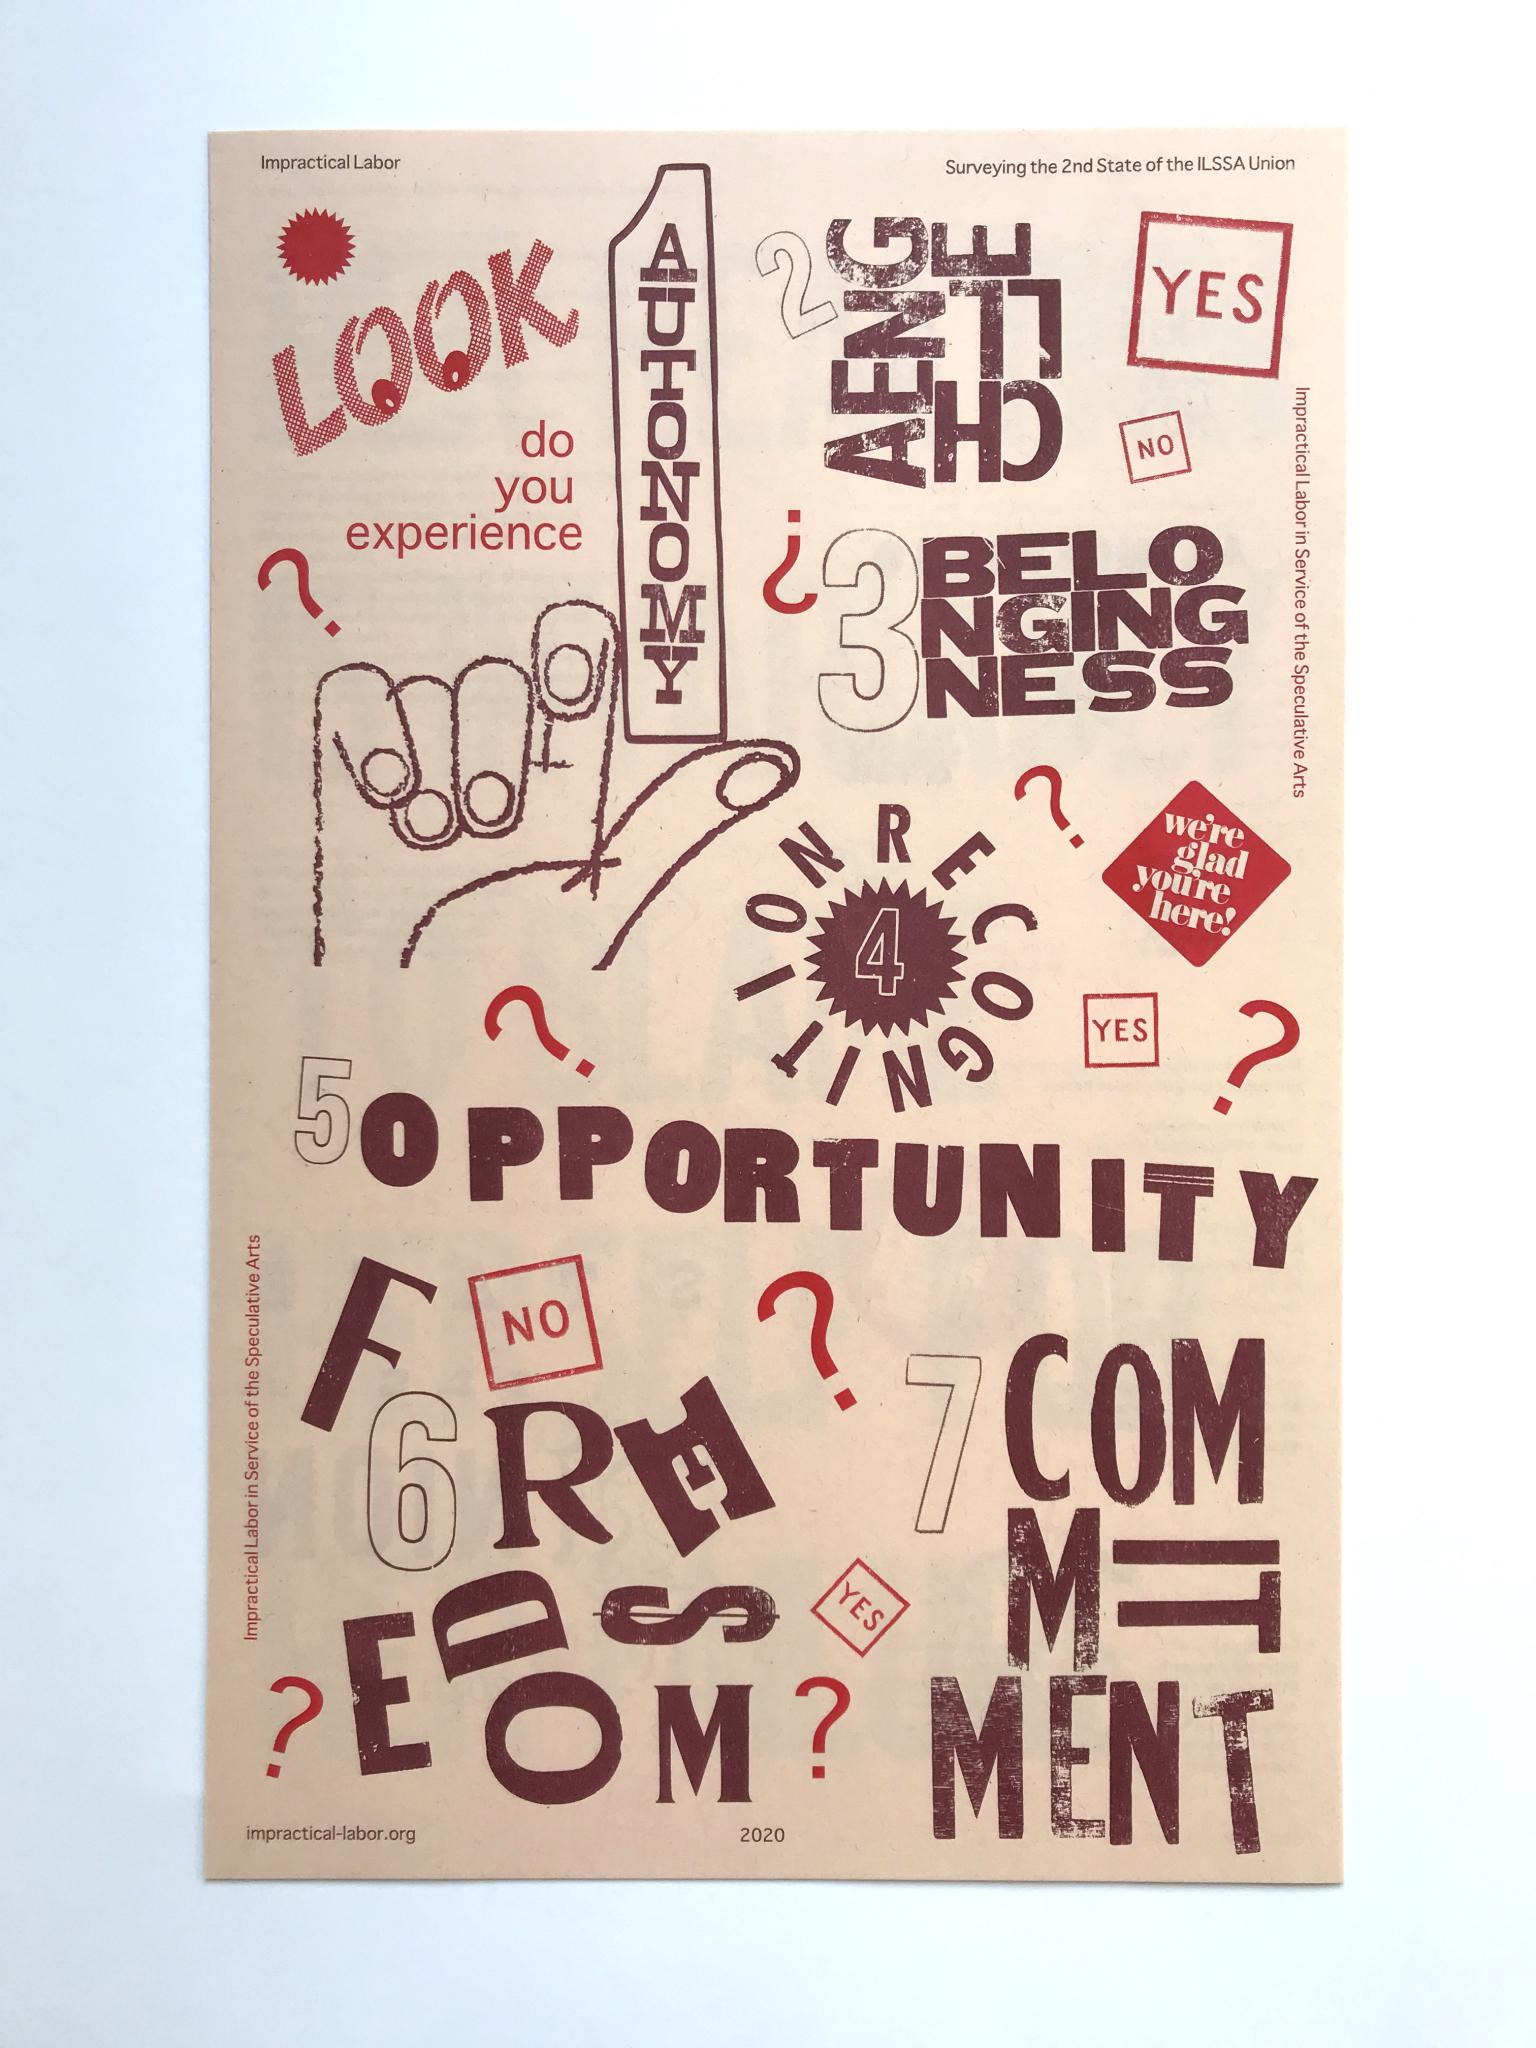 Impractical Labor
Surveying the 2nd State of the ILSSA Union
LOOK
do
you
experience
?
1
AUTONOMY
2
CHALLENGE
YES
NO
Impractical Labor in Service of the Speculative Arts
¿
3
BELO
NGING
NESS
?
we're
glad
you're
here!
4
RECOGNITION
YES
?
?
5
OPPORTUNITY
Impractical Labor in Service of the Speculative Arts
NO
?
6
FREEDOMS
YES
?
?
7
COM
MIT
MENT
impractical-labor.org
2020